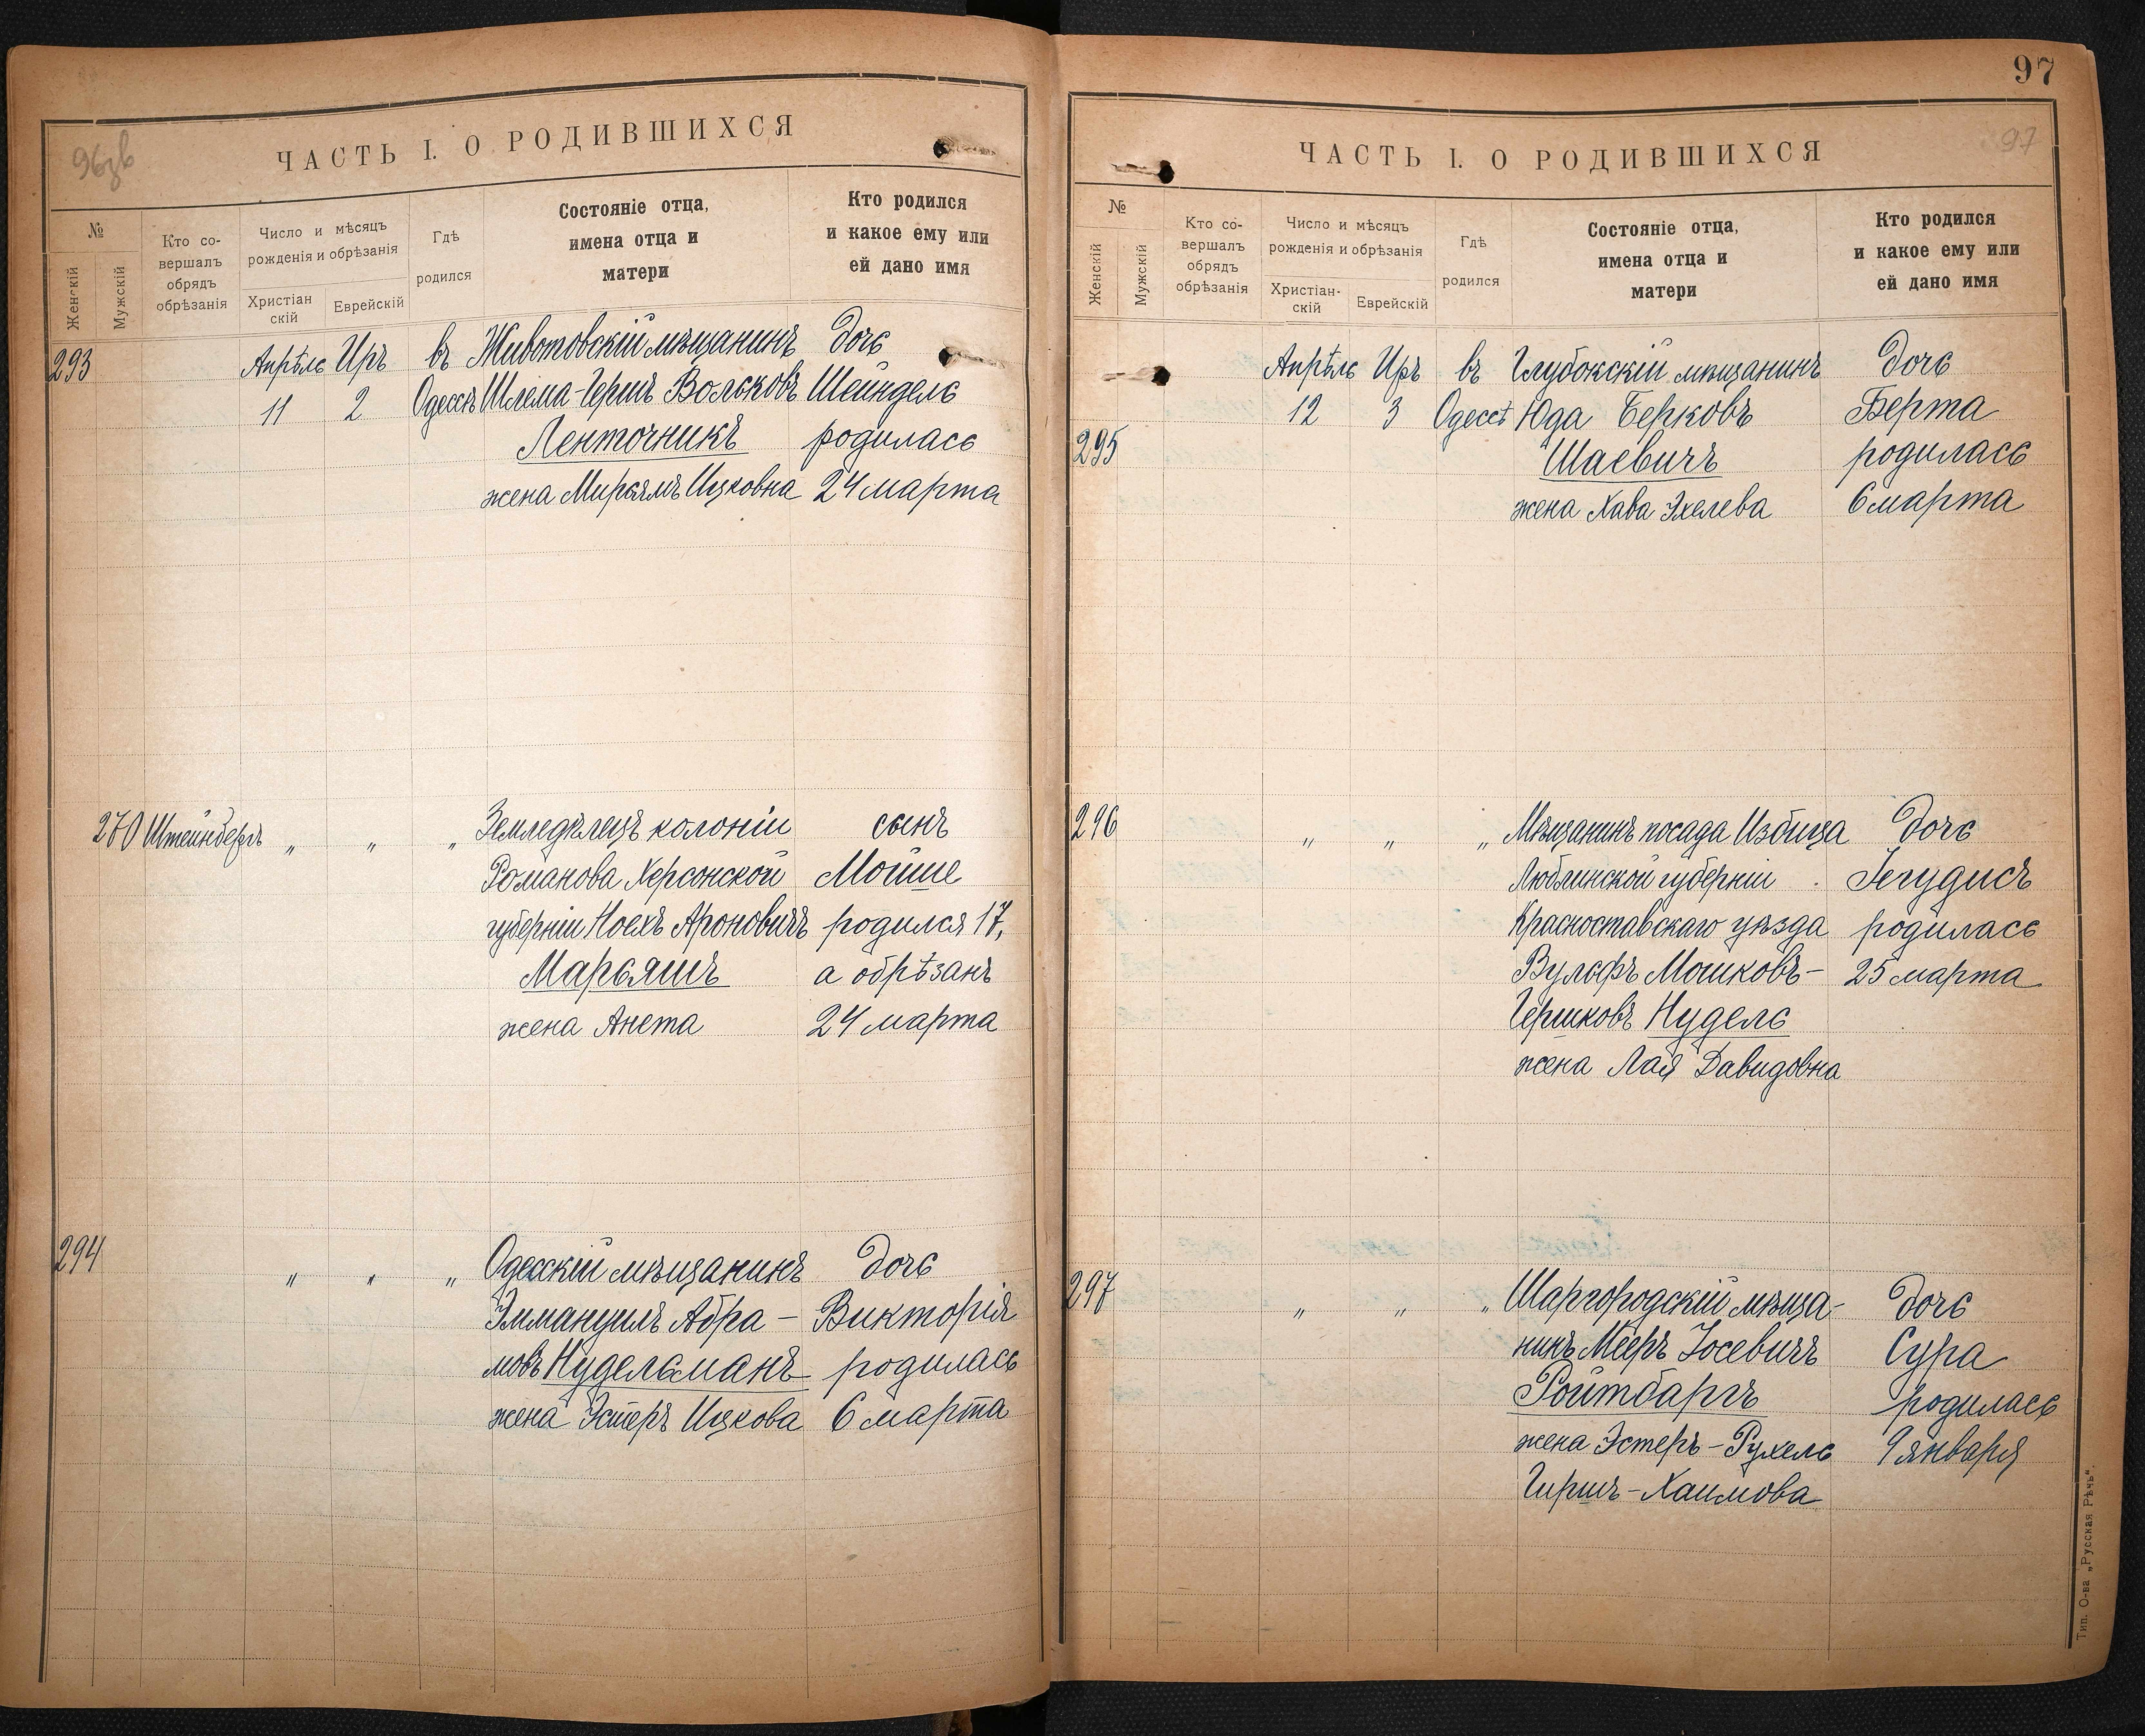 96зв
ЧАСТЬ I. О РОДИВШИХСЯ
№
Женскій
Мужскій
Кто со-
вершалъ
обрядъ
обрѣзанія
Число и мѣсяцъ
рожденія и обрѣзанія
Христіан
скій
Еврейскій
Гдѣ
родился
Состояніе отца,
имена отца и
матери
Кто родился
и какое ему или
ей дано имя
293 Апрѣль Иръ въ Животовскій мѣщанинъ дочь
11 2 Одессѣ Шлема-Гершъ Вольковъ Шейндель
Ленточникъ родилась
жена Мирьямъ Ицковна 24 марта
270 Штейнбергъ " " " Земледѣлецъ колоніи сынъ
Романова Херсонской Мойше
губерніи Ноехъ Ароновичъ родился 17,
Марьяшъ а обрѣзанъ
жена Анета 24 марта
294 " " " Одесскій мѣщанинъ дочь
Эммануилъ Абра- Викторія
мовъ Нудельманъ родилась
жена Эстеръ Ицкова 6 марта
97
97
ЧАСТЬ I. О РОДИВШИХСЯ
№
Женскій
Мужскій
Кто со-
вершалъ
обрядъ
обрѣзанія
Число и мѣсяцъ
рожденія и обрѣзанія
Христіан-
скій
Еврейскій
Гдѣ
родился
Состояніе отца,
имена отца и
матери
Кто родился
и какое ему или
ей дано имя
Апрѣль Иръ въ Глубокскій мѣщанинъ дочь
12 3 Одессѣ Юда Берковъ Берта
295 Шаевичъ родилась
жена Хава Эхелева 6 марта
296 " " " Мѣщанинъ посада Избица дочь
Люблинской губерніи Іегудисъ
Красноставскаго уѣзда родилась
Вульфъ Мошковъ- 25 марта
Гершковъ Нудель
жена Лая Давидовна
297 " " " Шаргородскій мѣща- дочь
нинъ Мееръ Іосевичъ Сура
Ройтбаргъ родилась
жена Эстеръ-Рухель 9 января
Гиршъ-Хаимова
Тип. О-ва „Русская Рѣчь“.